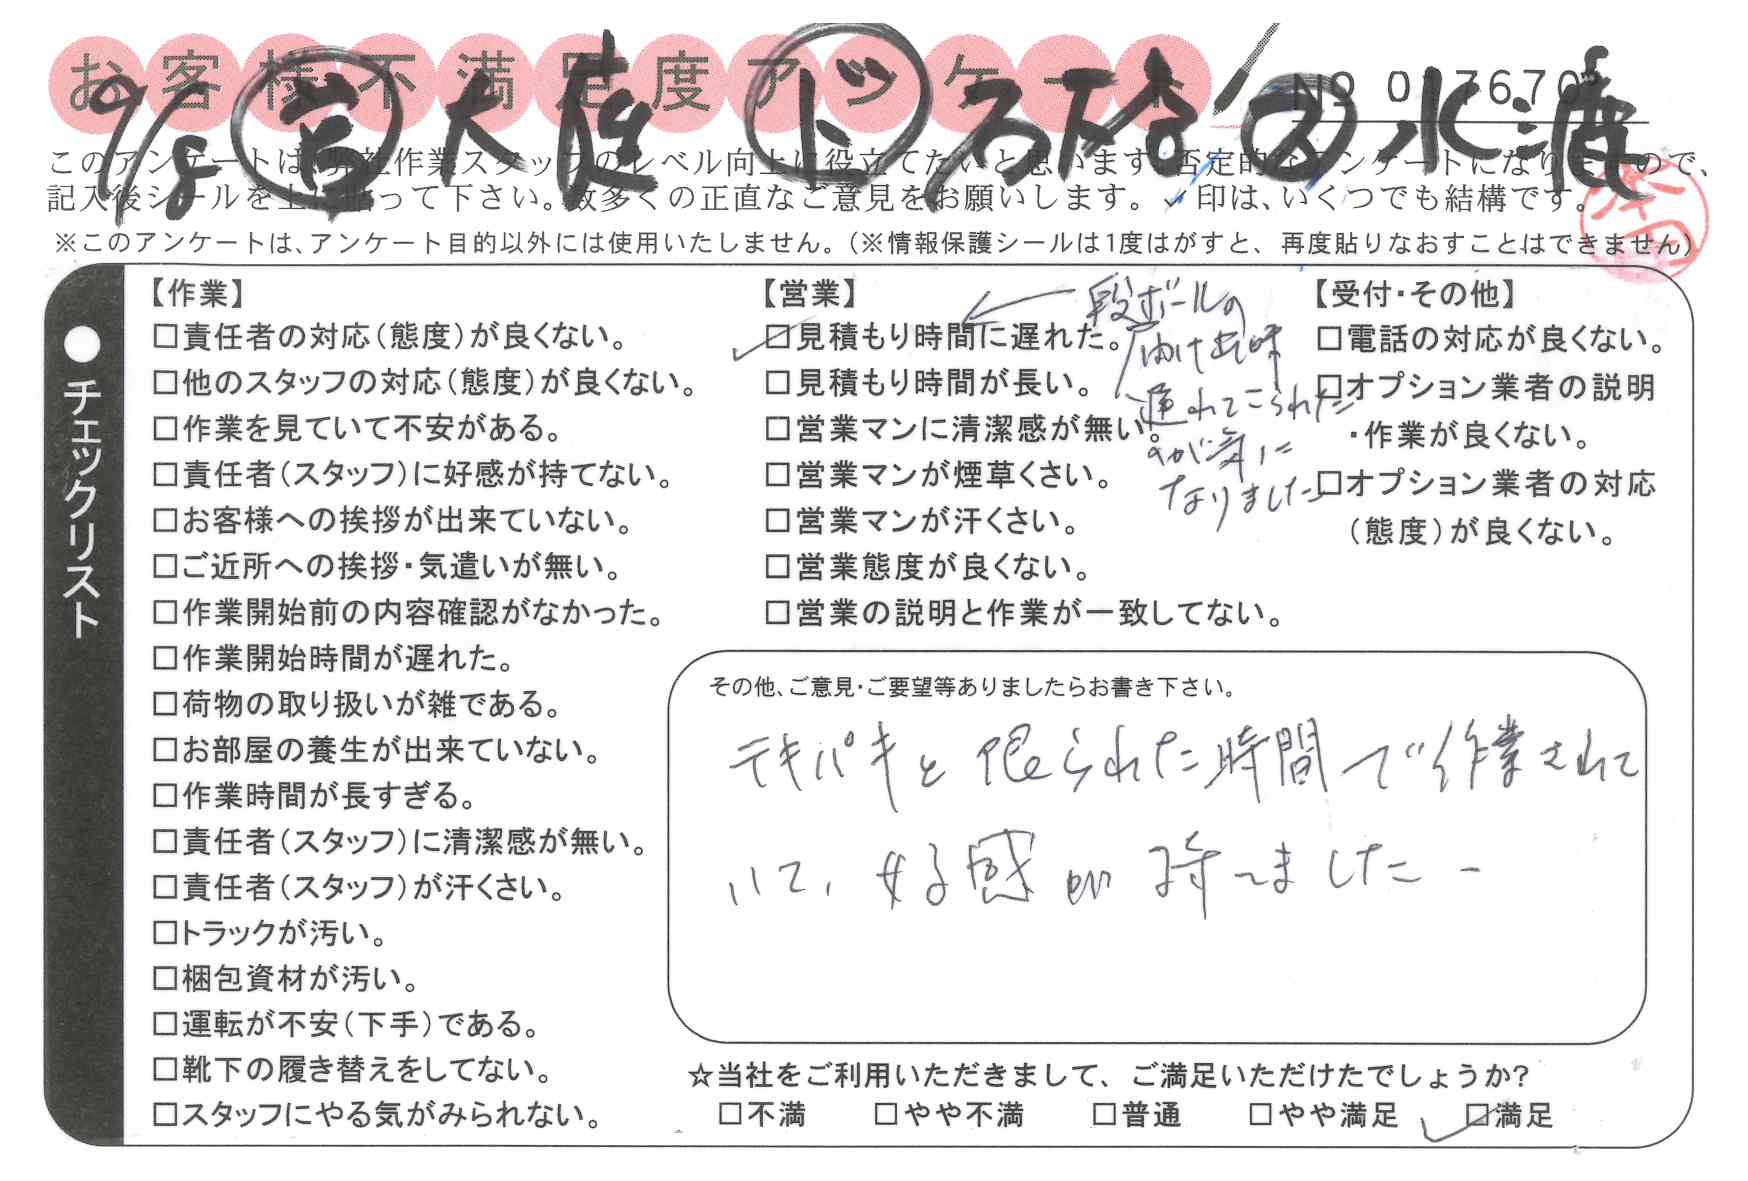 お客様不満足度アンケート
No 017670
9/8 営 大庭 ド 石脇 ス 水渡
このアンケートは、弊社作業スタッフのレベル向上に役立てたいと思います。否定的なアンケートになりますので、
記入後シールを上に貼って下さい。数多くの正直なご意見をお願いします。✓印は、いくつでも結構です。
※このアンケートは、アンケート目的以外には使用いたしません。(※情報保護シールは1度はがすと、再度貼りなおすことはできません)
●チェックリスト
【作業】
□責任者の対応(態度)が良くない。
□他のスタッフの対応(態度)が良くない。
□作業を見ていて不安がある。
□責任者(スタッフ)に好感が持てない。
□お客様への挨拶が出来ていない。
□ご近所への挨拶・気遣いが無い。
□作業開始前の内容確認がなかった。
□作業開始時間が遅れた。
□荷物の取り扱いが雑である。
□お部屋の養生が出来ていない。
□作業時間が長すぎる。
□責任者(スタッフ)に清潔感が無い。
□責任者(スタッフ)が汗くさい。
□トラックが汚い。
□梱包資材が汚い。
□運転が不安(下手)である。
□靴下の履き替えをしてない。
□スタッフにやる気がみられない。
【営業】
☑見積もり時間に遅れた。
□見積もり時間が長い。
□営業マンに清潔感が無い。
□営業マンが煙草くさい。
□営業マンが汗くさい。
□営業態度が良くない。
□営業の説明と作業が一致してない。
段ボールの
届け出時
遅れてこられた
のが気に
なりました
【受付・その他】
□電話の対応が良くない。
□オプション業者の説明
・作業が良くない。
□オプション業者の対応
(態度)が良くない。
その他、ご意見・ご要望等ありましたらお書き下さい。
テキパキと限られた時間で作業されて
いて、好感が持てました。
☆当社をご利用いただきまして、ご満足いただけたでしょうか?
□不満 □やや不満 □普通 □やや満足 ☑満足